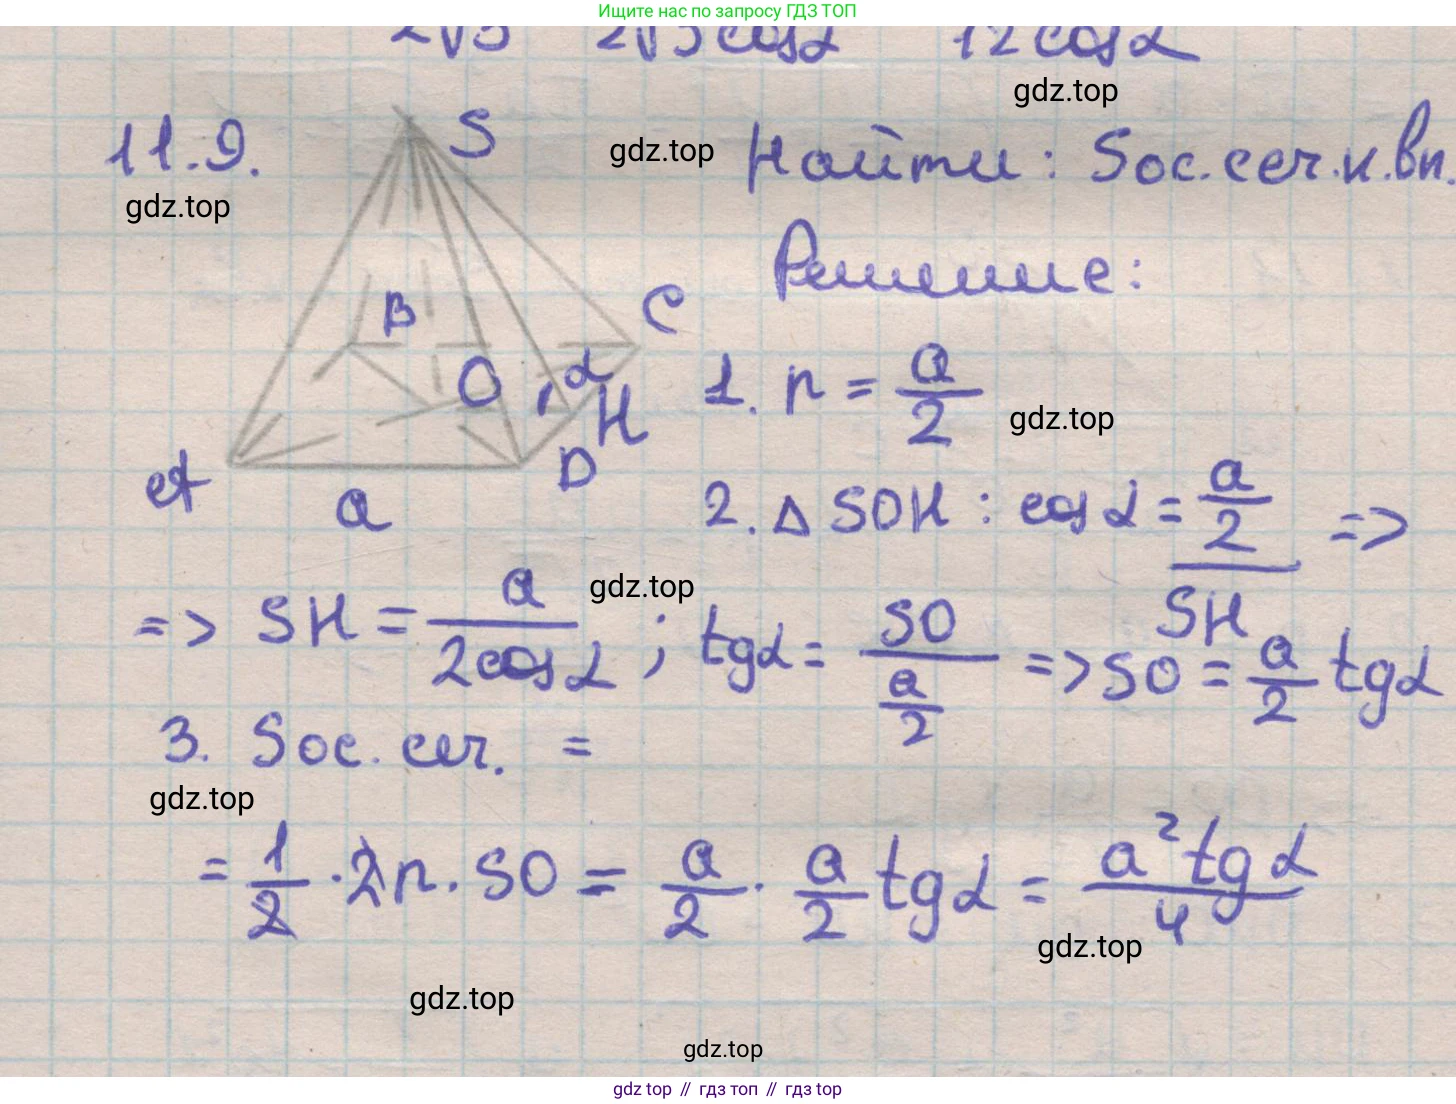 Ищите нас по запросу ГДЗ ТОП
2√3 2√3 cosα 12 cosα
gdz.top
11.9. S gdz.top Найти: Sос.сеч.к.вп.
gdz.top
Решение:
B C
O α H 1. r = a/2
gdz.top
A a D 2. △ SOH : cosα = (a/2)/SH =>
gdz.top
=> SH = a/(2cosα) ; tgα = SO/(a/2) => SO = a/2 tgα
3. Sос.сеч. =
gdz.top
= 1/2 · 2r · SO = a/2 · a/2 tgα = a² tgα/4
gdz.top
gdz.top
gdz.top
gdz top // гдз топ // гдз top